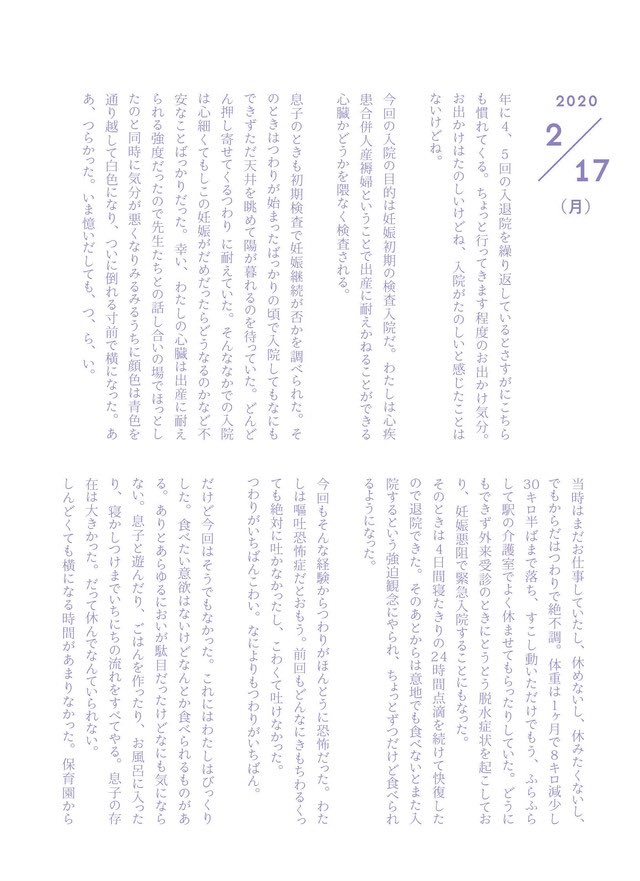 2020
2/17
（月）
年に4、5回の入退院を繰り返しているとさすがにこちら
も慣れてくる。ちょっと行ってきます程度のお出かけ気分。
お出かけはたのしいけどね、入院がたのしいと感じたことは
ないけどね。
今回の入院の目的は妊娠初期の検査入院だ。わたしは心疾
患合併人産褥婦ということで出産に耐えかねることができる
心臓かどうかを隈なく検査される。
息子のときも初期検査で妊娠継続が否かを調べられた。そ
のときはつわりが始まったばっかりの頃で入院してもなにも
できずただ天井を眺めて陽が暮れるのを待っていた。どんど
ん押し寄せてくるつわり に耐えていた。そんななかでの入院
は心細くてもしこの妊娠がだめだったらどうなるのかなど不
安なことばっかりだった。幸い、わたしの心臓は出産に耐え
られる強度だったので先生たちとの話し合いの場でほっとし
たのと同時に気分が悪くなりみるみるうちに顔色は青色を
通り越して白色になり、ついに倒れる寸前で横になった。あ
あ、つらかった。いま憶いだしても、つ、ら、い。
当時はまだお仕事していたし、休めないし、休みたくないし、
でもからだはつわりで絶不調。体重は1ヶ月で8キロ減少し
30キロ半ばまで落ち、すこし動いただけでもう、ふらふら
して駅の介護室でよく休ませてもらったりしていた。どうに
もできず外来受診のときにとうとう脱水症状を起こしてお
り、妊娠悪阻で緊急入院することにもなった。
そのときは4日間寝たきりの24時間点滴を続けて快復した
ので退院できた。そのあとからは意地でも食べないとまた入
院するという強迫観念にやられ、ちょっとずつだけど食べられ
るようになった。
今回もそんな経験からつわりがほんとうに恐怖だった。わた
しは嘔吐恐怖症だとおもう。前回もどんなにきもちわるくっ
ても絶対に吐かなかったし、こわくて吐けなかった。
つわりがいちばんこわい。なによりもつわりがいちばん。
だけど今回はそうでもなかった。これにはわたしはびっくり
した。食べたい意欲はないけどなんとか食べられるものがあ
る。ありとあらゆるにおいが駄目だったけどなにも気になら
ない。息子と遊んだり、ごはんを作ったり、お風呂に入った
り、寝かしつけまでいちにちの流れをすべてやる。息子の存
在は大きかった。だって休んでなんていられない。
しんどくても横になる時間があまりなかった。保育園から